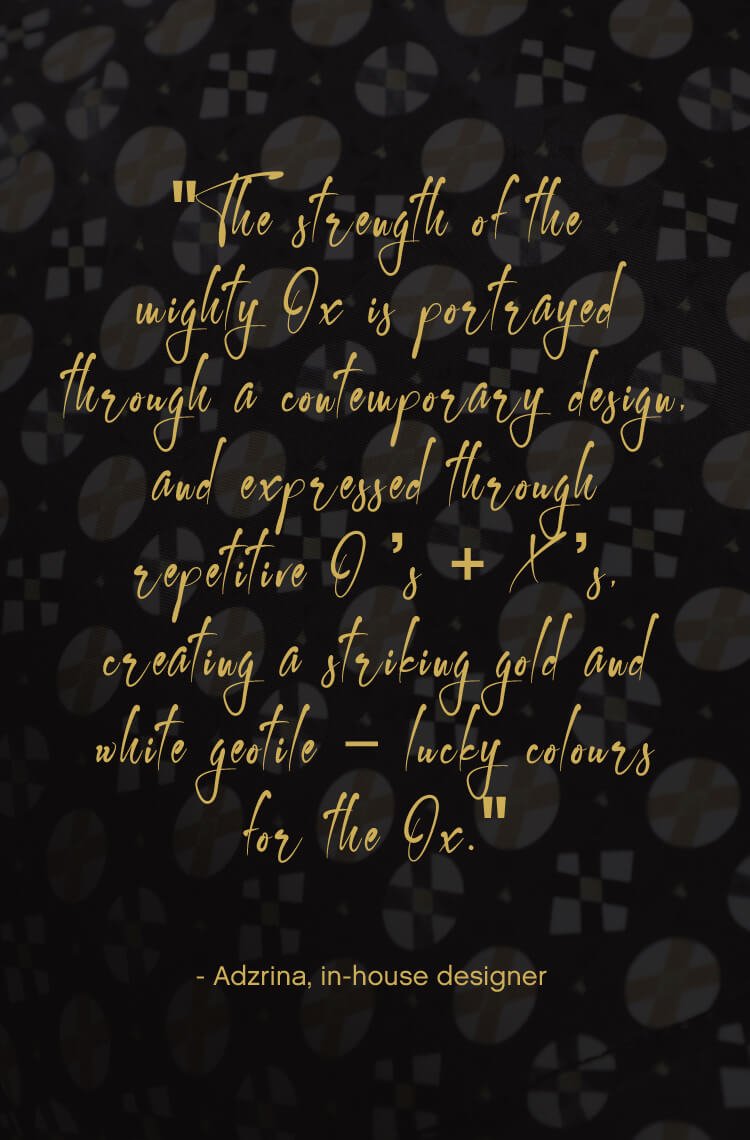 "The strength of the
mighty Ox is portrayed
through a contemporary design,
and expressed through
repetitive O's + X's,
creating a striking gold and
white geotile – lucky colours
for the Ox."
- Adzrina, in-house designer